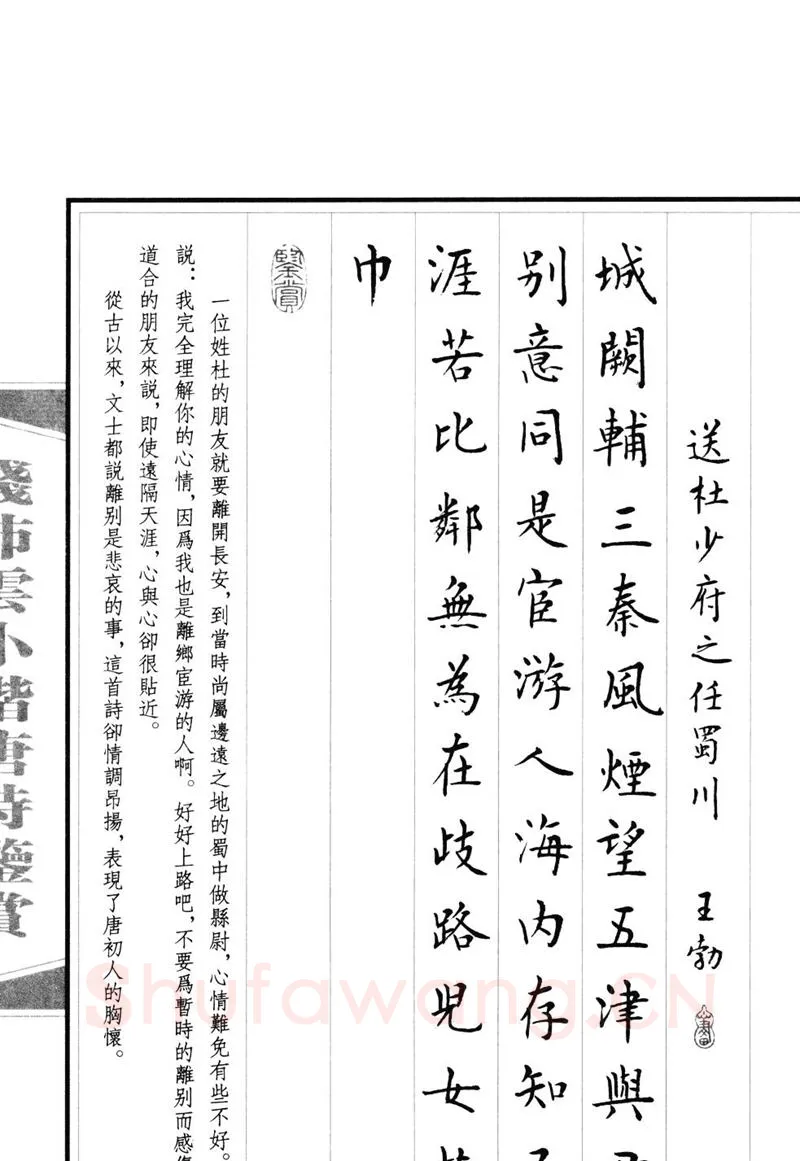 送杜少府之任蜀川 王勃
城闕輔三秦風煙望五津與
别意同是宦游人海内存知
涯若比鄰無為在歧路兒女
巾
鑒賞
一位姓杜的朋友就要離開長安，到當時尚屬邊遠之地的蜀中做縣尉，心情難免有些不好。
説：我完全理解你的心情，因爲我也是離鄉宦游的人啊。好好上路吧，不要爲暫時的離别而感傷
道合的朋友來説，即使遠隔天涯，心與心卻很貼近。
從古以來，文士都説離别是悲哀的事，這首詩卻情調昂揚，表現了唐初人的胸懷。
雲小楷唐詩鑒賞
Shufawang.CN